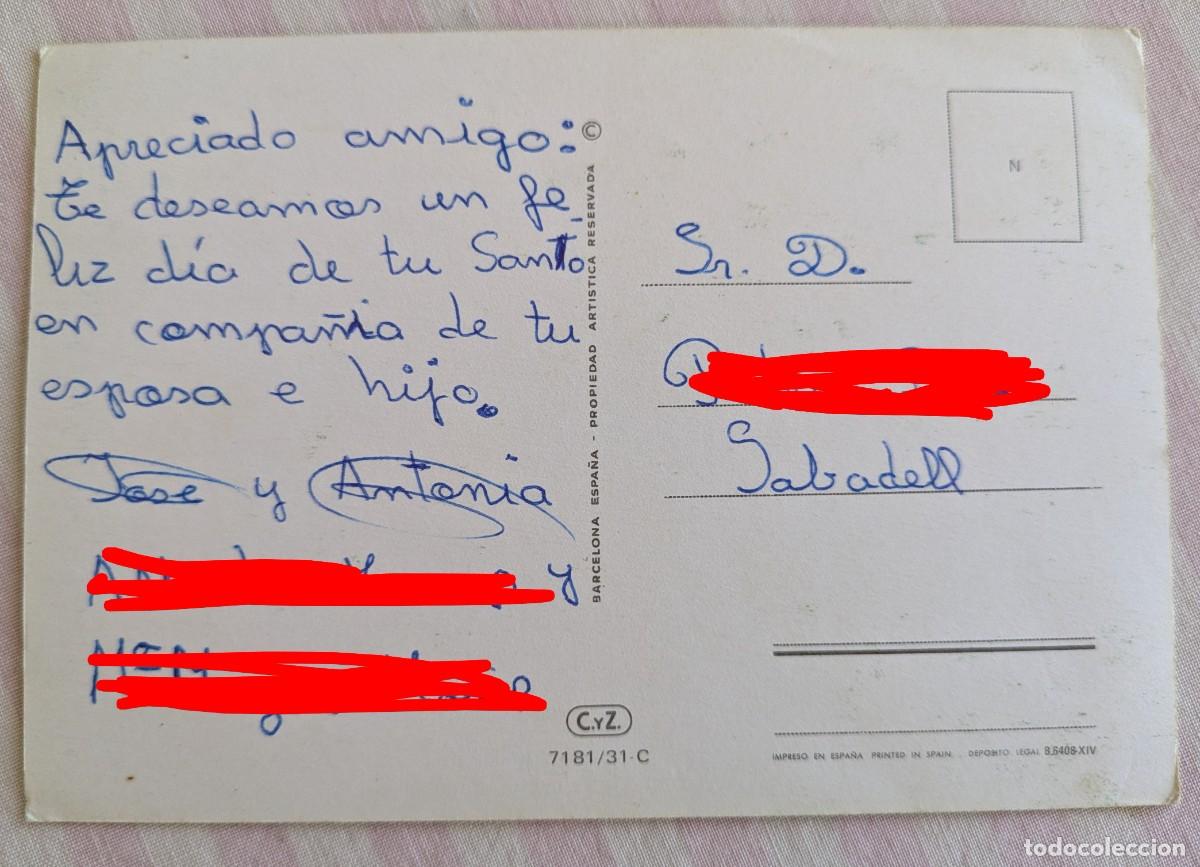 Apreciado amigo:
Te deseamos un fe-
liz día de tu Santo
en compañia de tu
esposa e hijo.
Jose y Antonia
y
©
BARCELONA ESPAÑA - PROPIEDAD ARTISTICA RESERVADA
N
Sr. D.
Sabadell
C.Y Z.
7181/31-C
IMPRESO EN ESPAÑA PRINTED IN SPAIN. DEPOSITO LEGAL B.6408-XIV
todocoleccion